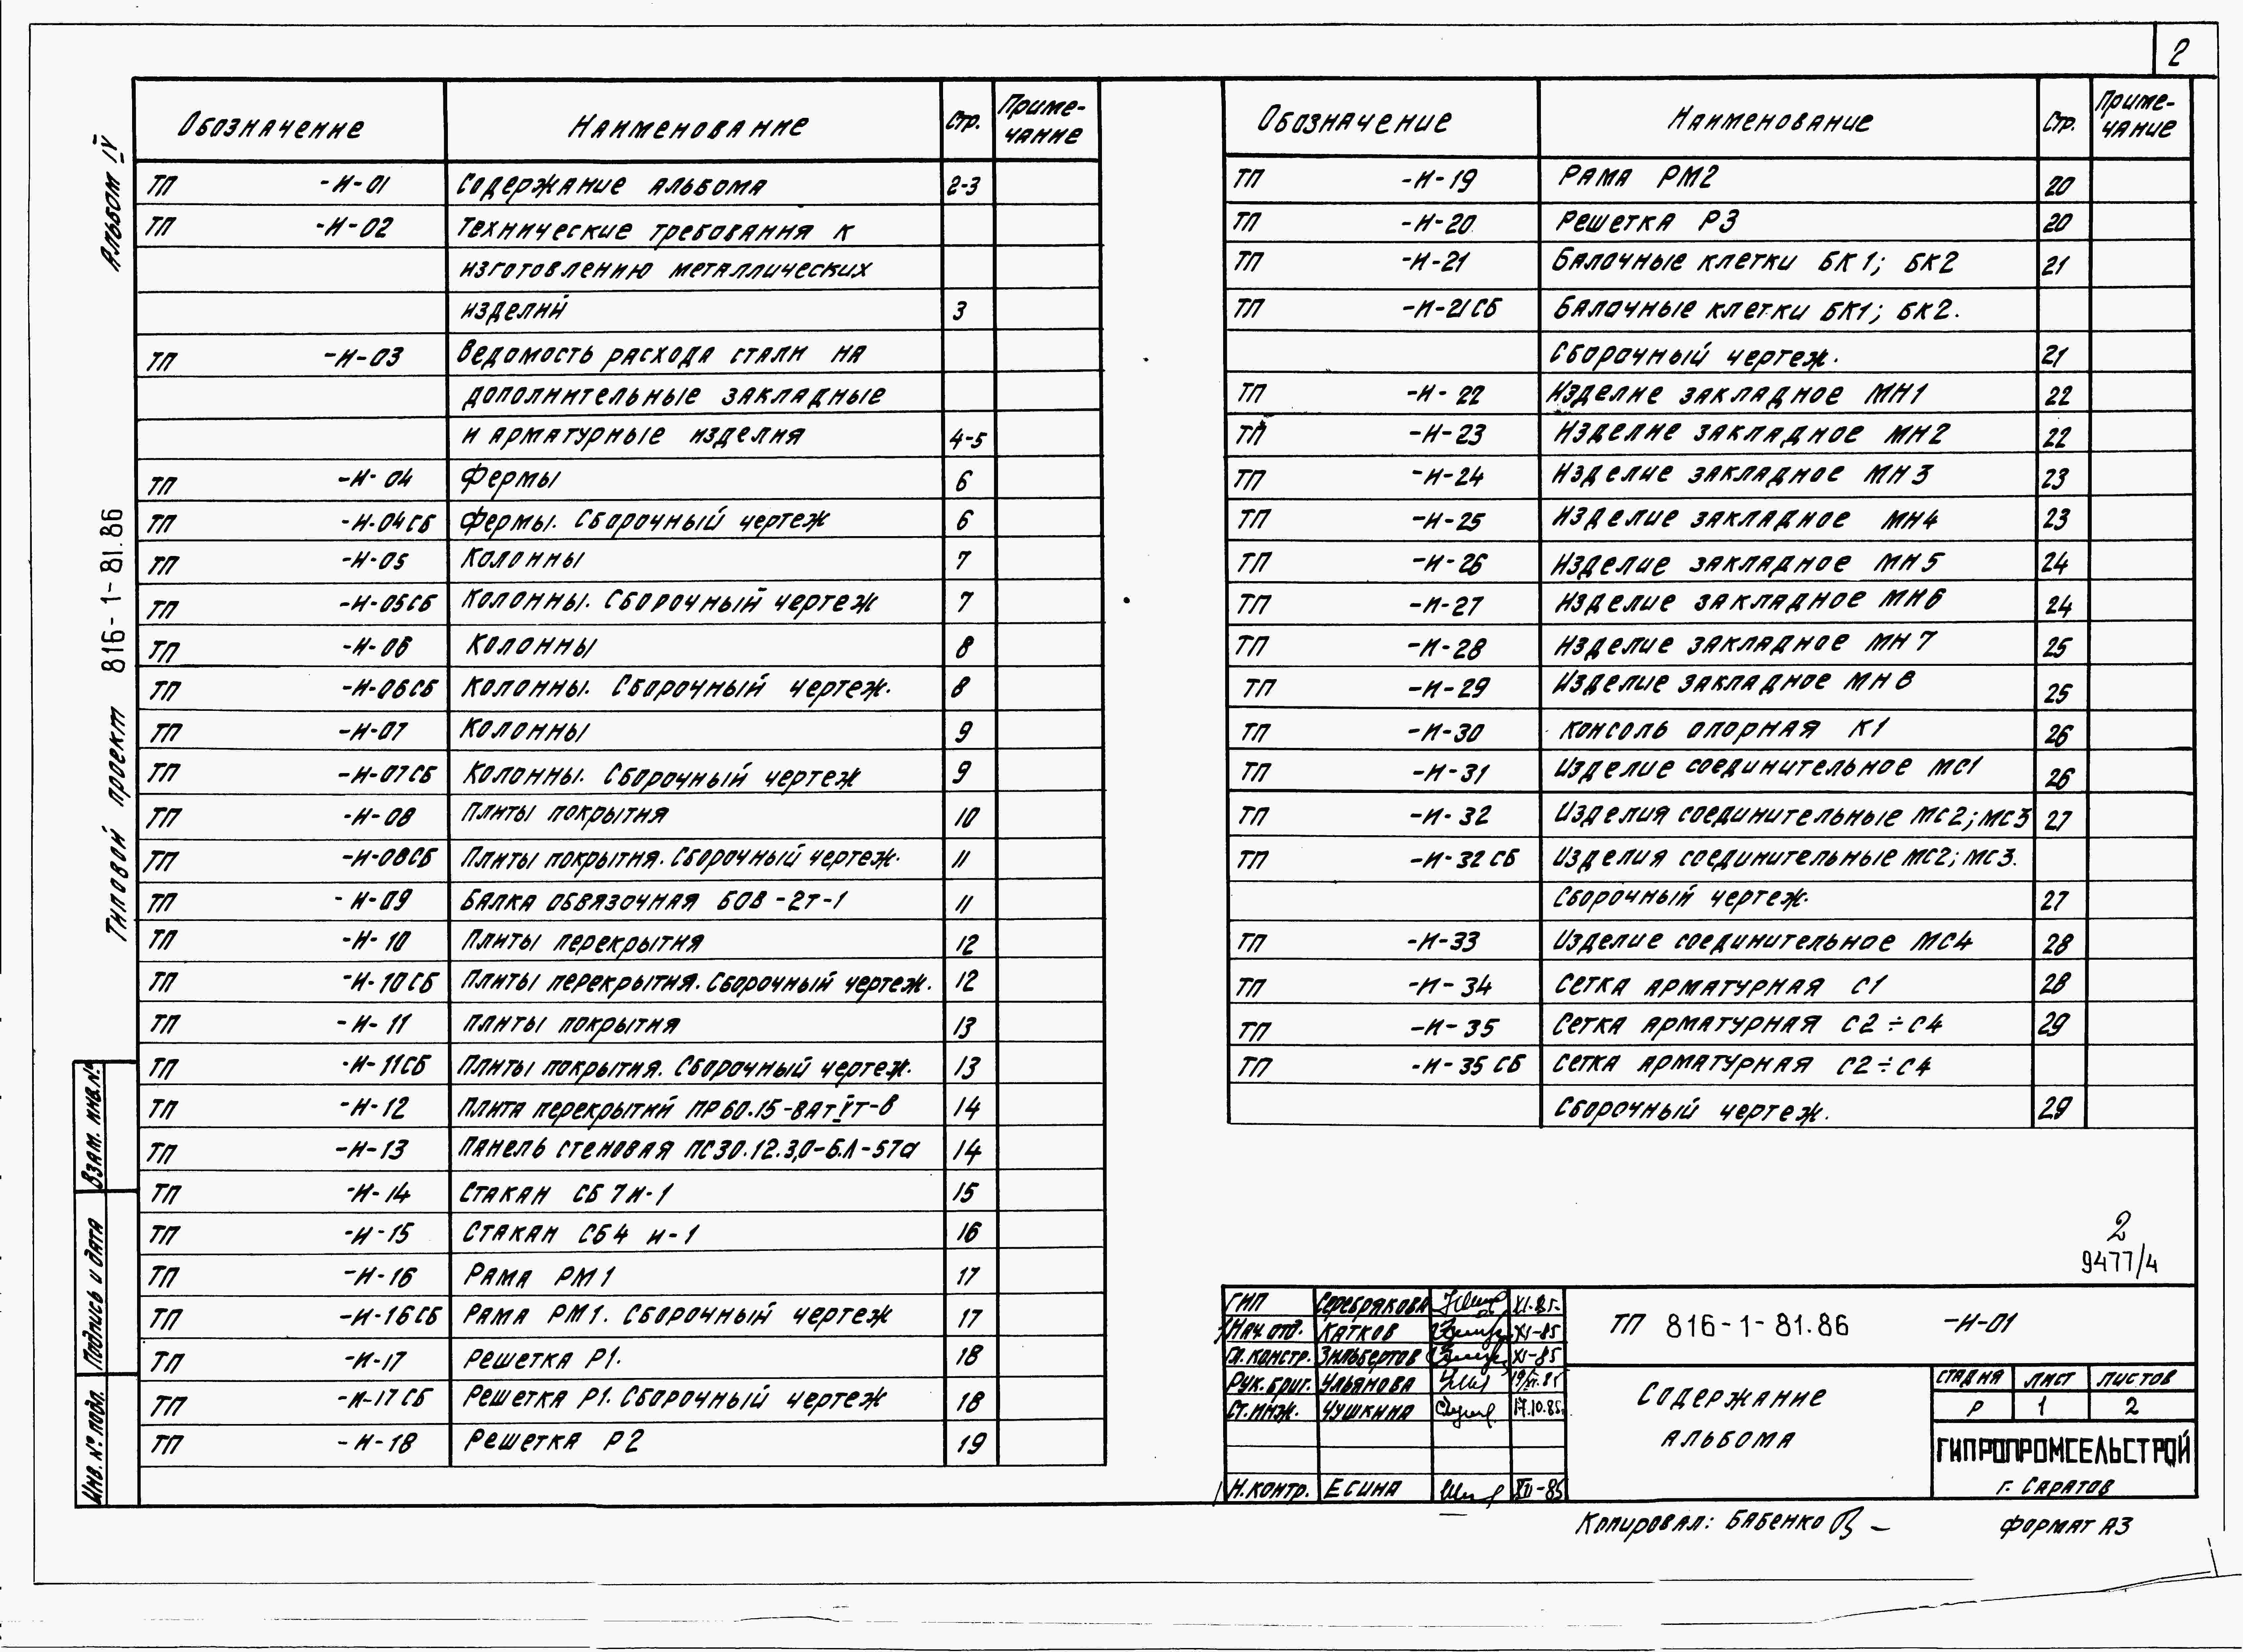 2
Альбом IV
Типовой проект 816-1-81.86
Обозначение Наименование Стр. Приме-
чание
ТП -И-01 Содержание альбома 2-3
ТП -И-02 Технические требования к
изготовлению металлических
изделий 3
ТП -И-03 Ведомость расхода стали на
дополнительные закладные
и арматурные изделия 4-5
ТП -И-04 Фермы 6
ТП -И-04СБ Фермы. Сборочный чертеж 6
ТП -И-05 Колонны 7
ТП -И-05СБ Колонны. Сборочный чертеж 7
ТП -И-06 Колонны 8
ТП -И-06СБ Колонны. Сборочный чертеж. 8
ТП -И-07 Колонны 9
ТП -И-07СБ Колонны. Сборочный чертеж 9
ТП -И-08 Плиты покрытия 10
ТП -И-08СБ Плиты покрытия. Сборочный чертеж. 11
ТП -И-09 Балка обвязочная БОВ-2т-1 11
ТП -И-10 Плиты перекрытия 12
ТП -И-10СБ Плиты перекрытия. Сборочный чертеж. 12
ТП -И-11 Плиты покрытия 13
ТП -И-11СБ Плиты покрытия. Сборочный чертеж. 13
ТП -И-12 Плита перекрытий ПР60.15-8АтVт-в 14
ТП -И-13 Панель стеновая ПС30.12.3,0-6.Л-57а 14
ТП -И-14 Стакан СБ7И-1 15
ТП -И-15 Стакан СБ4 и-1 16
ТП -И-16 Рама РМ1 17
ТП -И-16СБ Рама РМ1. Сборочный чертеж 17
ТП -И-17 Решетка Р1. 18
ТП -И-17СБ Решетка Р1. Сборочный чертеж 18
ТП -И-18 Решетка Р2 19
Обозначение Наименование Стр. Приме-
чание
ТП -И-19 Рама РМ2 20
ТП -И-20 Решетка Р3 20
ТП -И-21 Балочные клетки БК1; БК2 21
ТП -И-21СБ Балочные клетки БК1; БК2.
Сборочный чертеж. 21
ТП -И-22 Изделие закладное МН1 22
ТП -И-23 Изделие закладное МН2 22
ТП -И-24 Изделие закладное МН3 23
ТП -И-25 Изделие закладное МН4 23
ТП -И-26 Изделие закладное МН5 24
ТП -И-27 Изделие закладное МН6 24
ТП -И-28 Изделие закладное МН7 25
ТП -И-29 Изделие закладное МН8 25
ТП -И-30 Консоль опорная К1 26
ТП -И-31 Изделие соединительное МС1 26
ТП -И-32 Изделия соединительные МС2; МС3 27
ТП -И-32СБ Изделия соединительные МС2; МС3.
Сборочный чертеж. 27
ТП -И-33 Изделие соединительное МС4 28
ТП -И-34 Сетка арматурная С1 28
ТП -И-35 Сетка арматурная С2÷С4 29
ТП -И-35СБ Сетка арматурная С2÷С4
Сборочный чертеж. 29
2
9477/4
Взам. инв.№
Подпись и дата
Инв.№ подл.
ГИП Серебрякова XI-85.
Нач. отд. Катков XI-85
Гл. констр. Зильбертов XI-85
Рук. бриг. Ульянова
Ст. инж. Чушкина 17.10.85.
Н. контр. Есина XII-85
ТП 816-1-81.86 -И-01
Содержание
альбома
Стадия Лист Листов
Р 1 2
ГИПРОПРОМСЕЛЬСТРОЙ
г. Саратов
Копировал: Бабенко
Формат А3